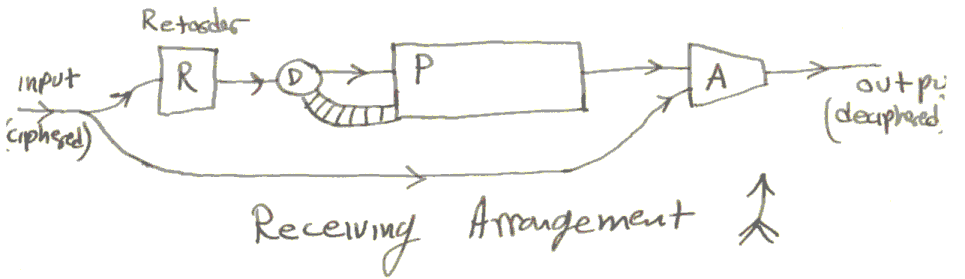 Retarder
input
(ciphered)
R
D
P
A
outpu
(deciphered
Receiving Arrangement